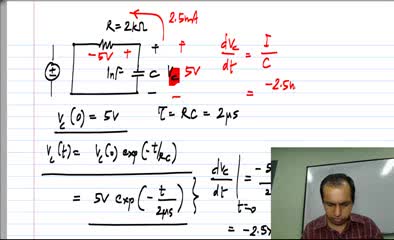 R = 2kΩ
2.5mA
+ +
-5V +
1nF C Vc 5V
dVc/dt = I/C
= -2.5m
Vc(0) = 5V
τ = RC = 2μs
Vc(t) = Vc(0) exp(-t/RC)
= 5V exp(-t/2μs)
dVc/dt | t=0 = -5
= -2.5